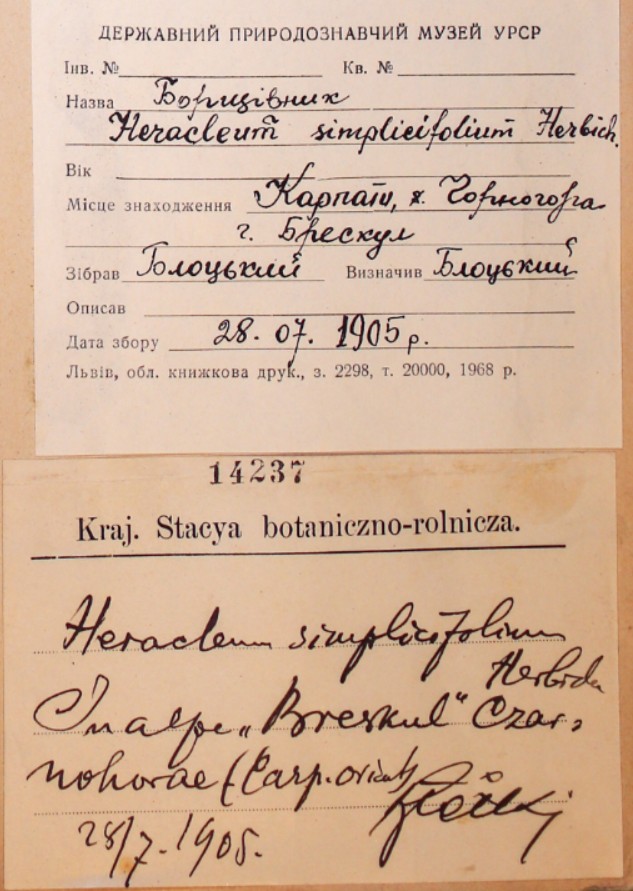 ДЕРЖАВНИЙ ПРИРОДОЗНАВЧИЙ МУЗЕЙ УРСР
Інв. № Кв. №
Назва Борщівник
Heracleum simplicifolium Herbich.
Вік
Місце знаходження Карпати, х. Чорногора
г. Брескул
Зібрав Блоцький Визначив Блоцький
Описав
Дата збору 28. 07. 1905 р.
Львів, обл. книжкова друк., з. 2298, т. 20000, 1968 р.
14237
Kraj. Stacya botaniczno-rolnicza.
Heracleum simplicifolium
Herbich
In alpe „Breskul" Czar-
nohorae (Carp. orient)
28/7. 1905.